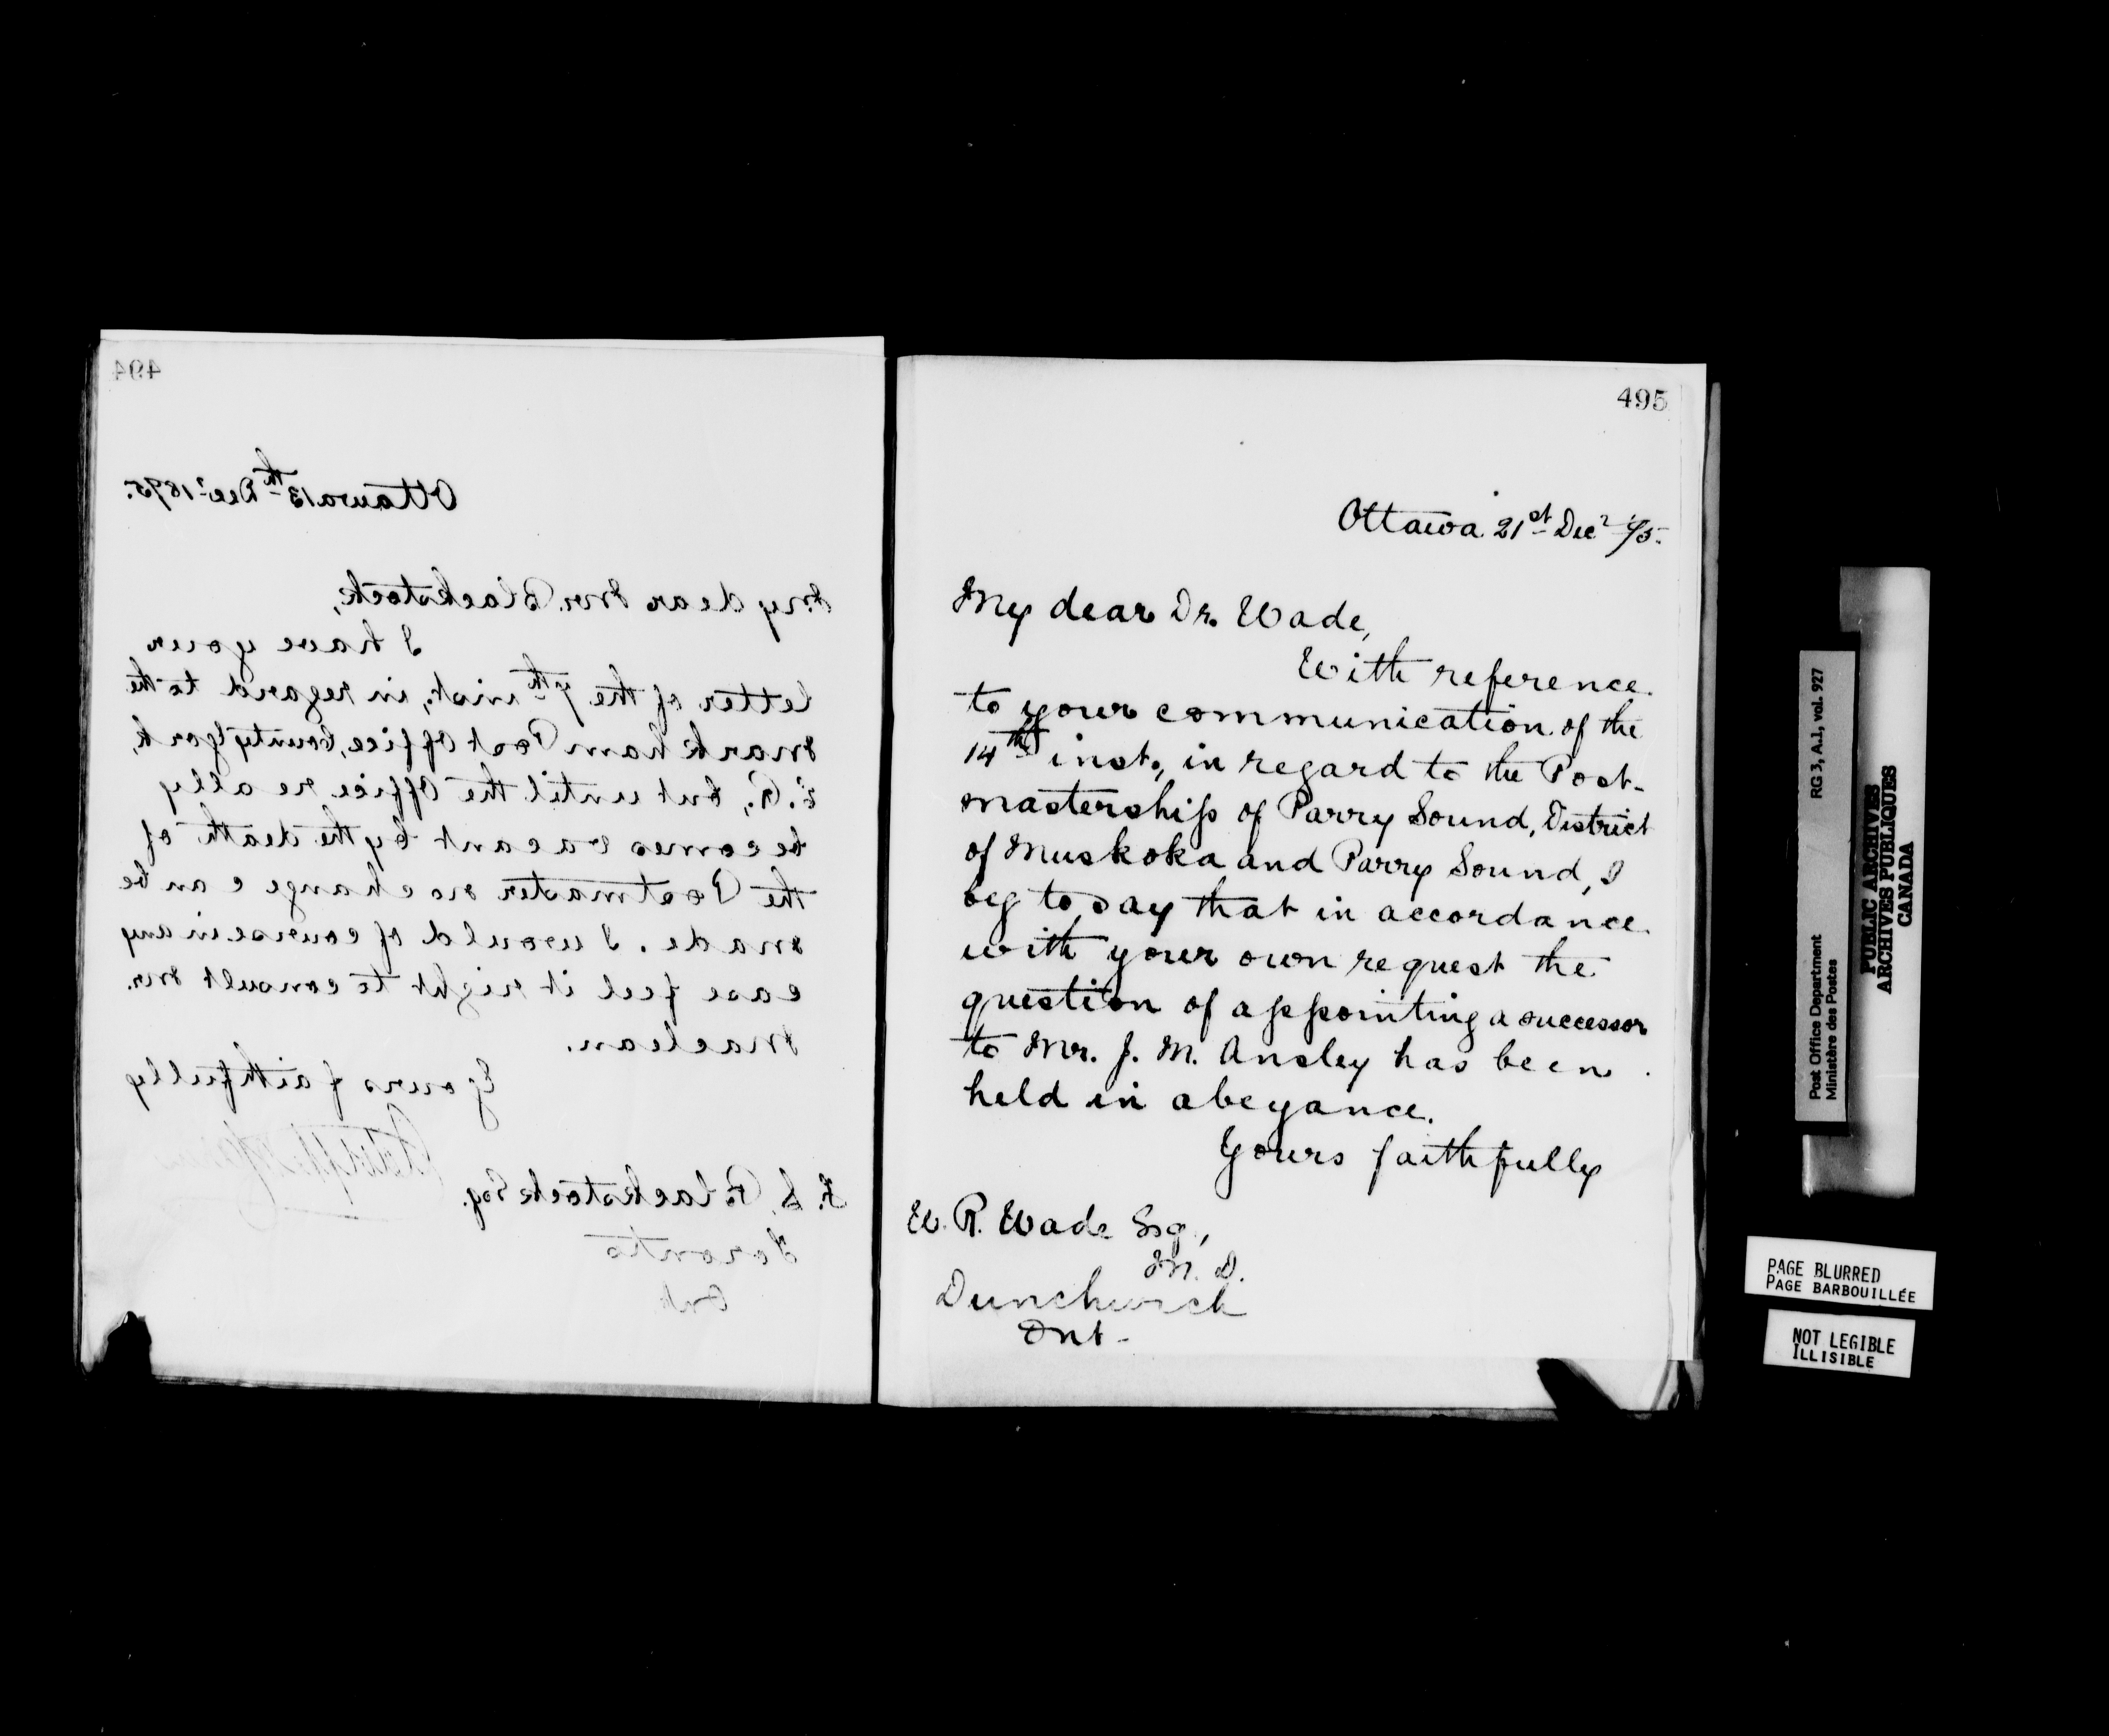 494
Ottawa 13th Decr 1895.
My dear Mr. Blackstock,
I have your
letter of the 7th inst., in regard to the
Markham Post Office, County York,
E.R., but until the Office really
becomes vacant by the death of
the Postmaster no change can be
made. I would of course in any
case feel it right to consult Mr.
Maclean.
Yours faithfully
Blackstock Esq.
Toronto
Ont
495
Ottawa 21st Decr /95.
My dear Dr. Wade,
With reference
to your communication of the
14th inst., in regard to the Post-
mastership of Parry Sound, District
of Muskoka and Parry Sound, I
beg to say that in accordance
with your own request the
question of appointing a successor
to Mr. J. M. Ansley has been
held in abeyance.
Yours faithfully
W. R. Wade Esq.,
M. D.
Dunchurch
Ont-
Post Office Department RG 3, A.1, vol. 927
Ministère des Postes
PUBLIC ARCHIVES
ARCHIVES PUBLIQUES
CANADA
PAGE BLURRED
PAGE BARBOUILLÉE
NOT LEGIBLE
ILLISIBLE